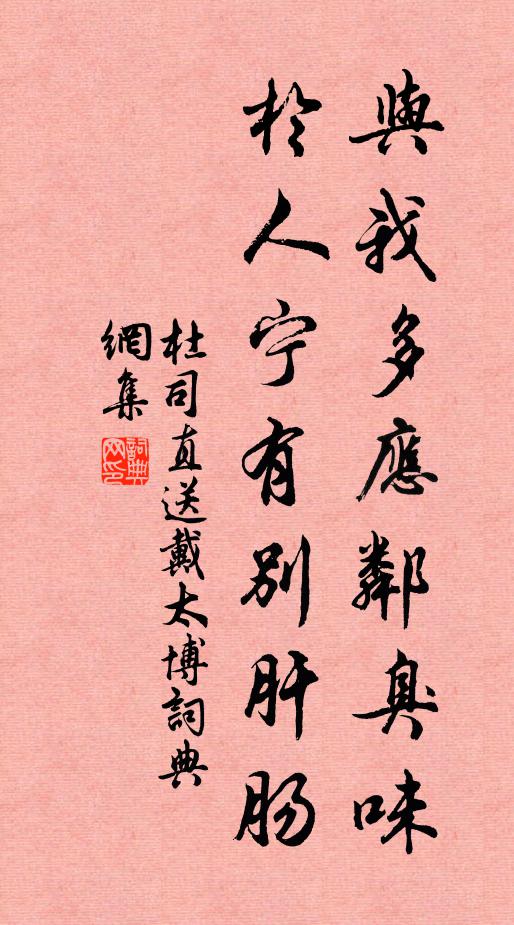 與我多應鄰臭味
於人宁有別肝肠
杜司直送戴太博詞典
網集
詞典
网印